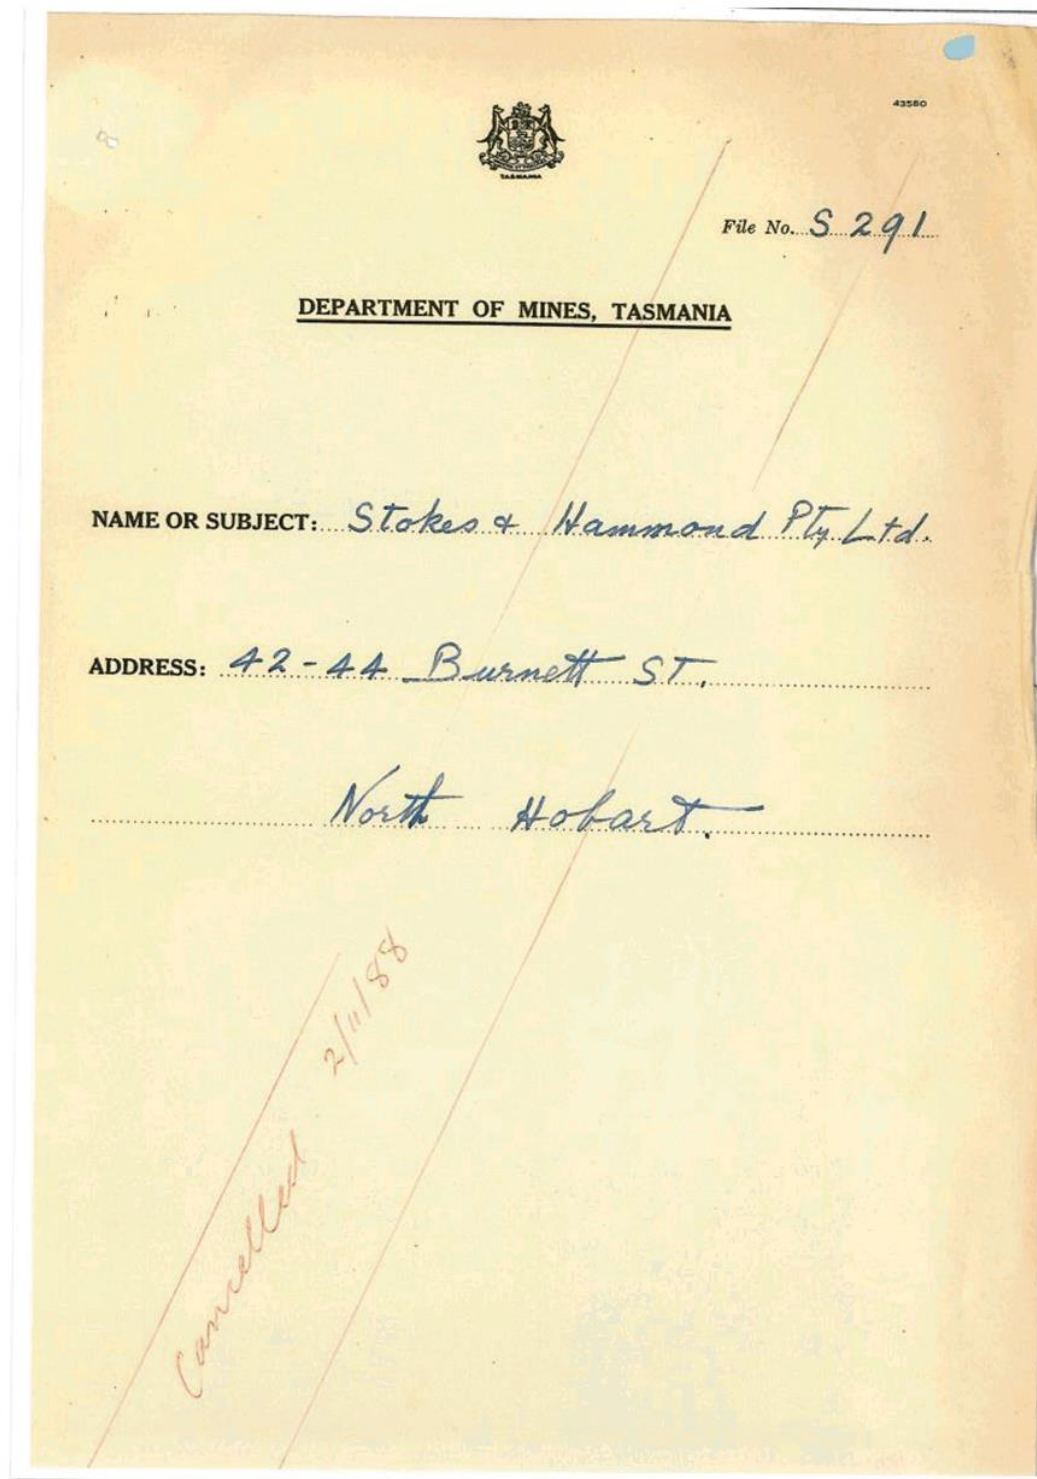 43580
TASMANIA
File No. S 291
DEPARTMENT OF MINES, TASMANIA
NAME OR SUBJECT: Stokes & Hammond Pty Ltd.
ADDRESS: 42-44 Burnett ST.
North Hobart.
Cancelled 2/11/88